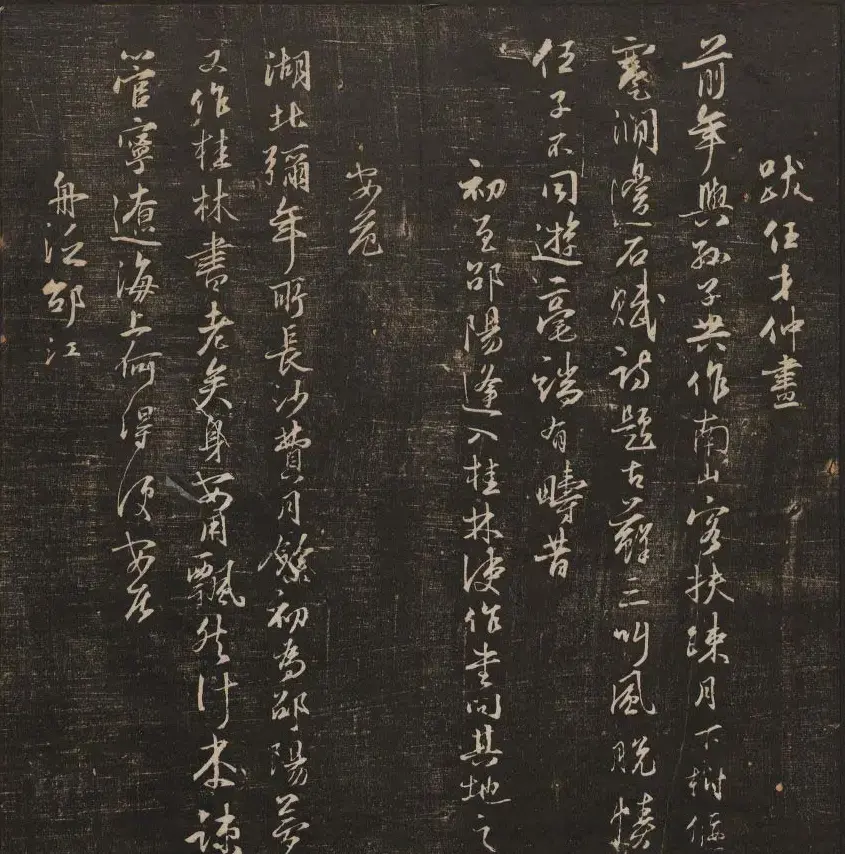 跋任才仲畫
前年與孫子共作南山客扶疎月下樹偃
蹇澗邊石賦詩題古蘚三叫風脫幘
任子不同遊毫端有疇昔
初至邵陽逢入桂林使作書問其地之
安危
湖北彌年所長沙費月餘初為邵陽夢
又作桂林書老矣身安用飄然計本疎
管寧遼海上何得便安居
舟泛邵江